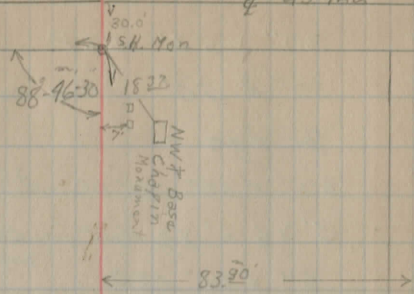 30.0'
S.H. Mon
88°-46'-30"
18.22
7.
NW & Base
Chapin
Monument
83.90'